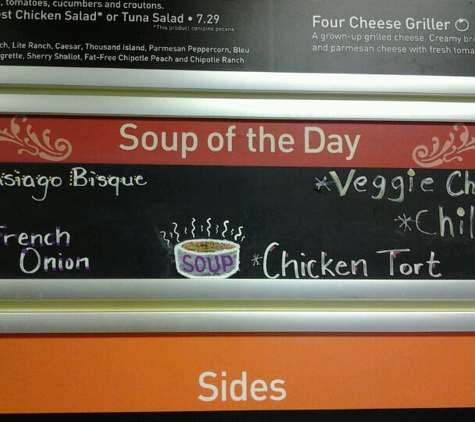 , tomatoes, cucumbers and croutons.
est Chicken Salad* or Tuna Salad • 7.29
*This product contains pecans
ch, Lite Ranch, Caesar, Thousand Island, Parmesan Peppercorn, Bleu
grette, Sherry Shallot, Fat-Free Chipotle Peach and Chipotle Ranch
Four Cheese Griller
A grown-up grilled cheese. Creamy bri
and parmesan cheese with fresh toma
Soup of the Day
siago Bisque
*Veggie Ch
*Chil
French
Onion
SOUP
*Chicken Tort
Sides